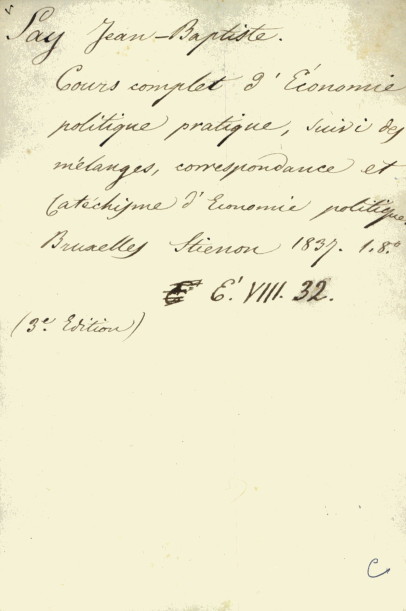 Say Jean-Baptiste.
Cours complet d'Économie
politique pratique, suivi des
mélanges, correspondance et
Catéchisme d'Economie politique.
Bruxelles Stienon 1837. 1.8.º
E' VIII. 32.
(3e Edition)
C